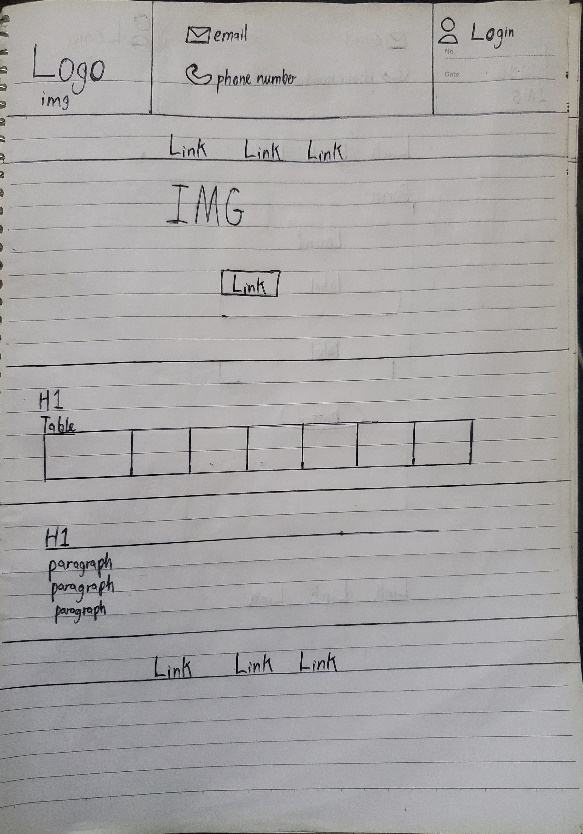 Logo
img
email
phone number
Login
No.
Date
Link Link Link
IMG
Link
H1
Table
H1
paragraph
paragraph
paragraph
Link Link Link